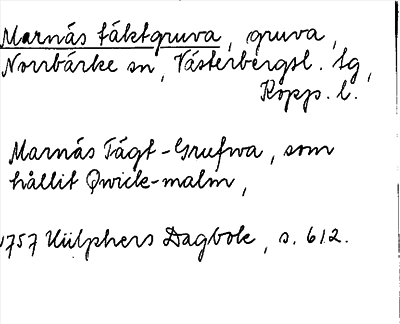 Marnäs täktgruva, gruva,
Norrbärke sn, Västerbergsl. tg,
Kopp. l.
Marnäs Tägt-Grufwa, som
hållit Qwick-malm,
1757 Hülphers Dagbok, s. 612.